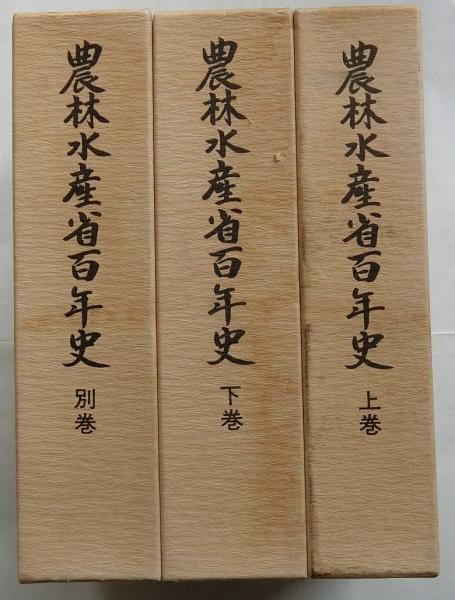 農林水産省百年史 上巻
農林水産省百年史 下巻
農林水産省百年史 別巻